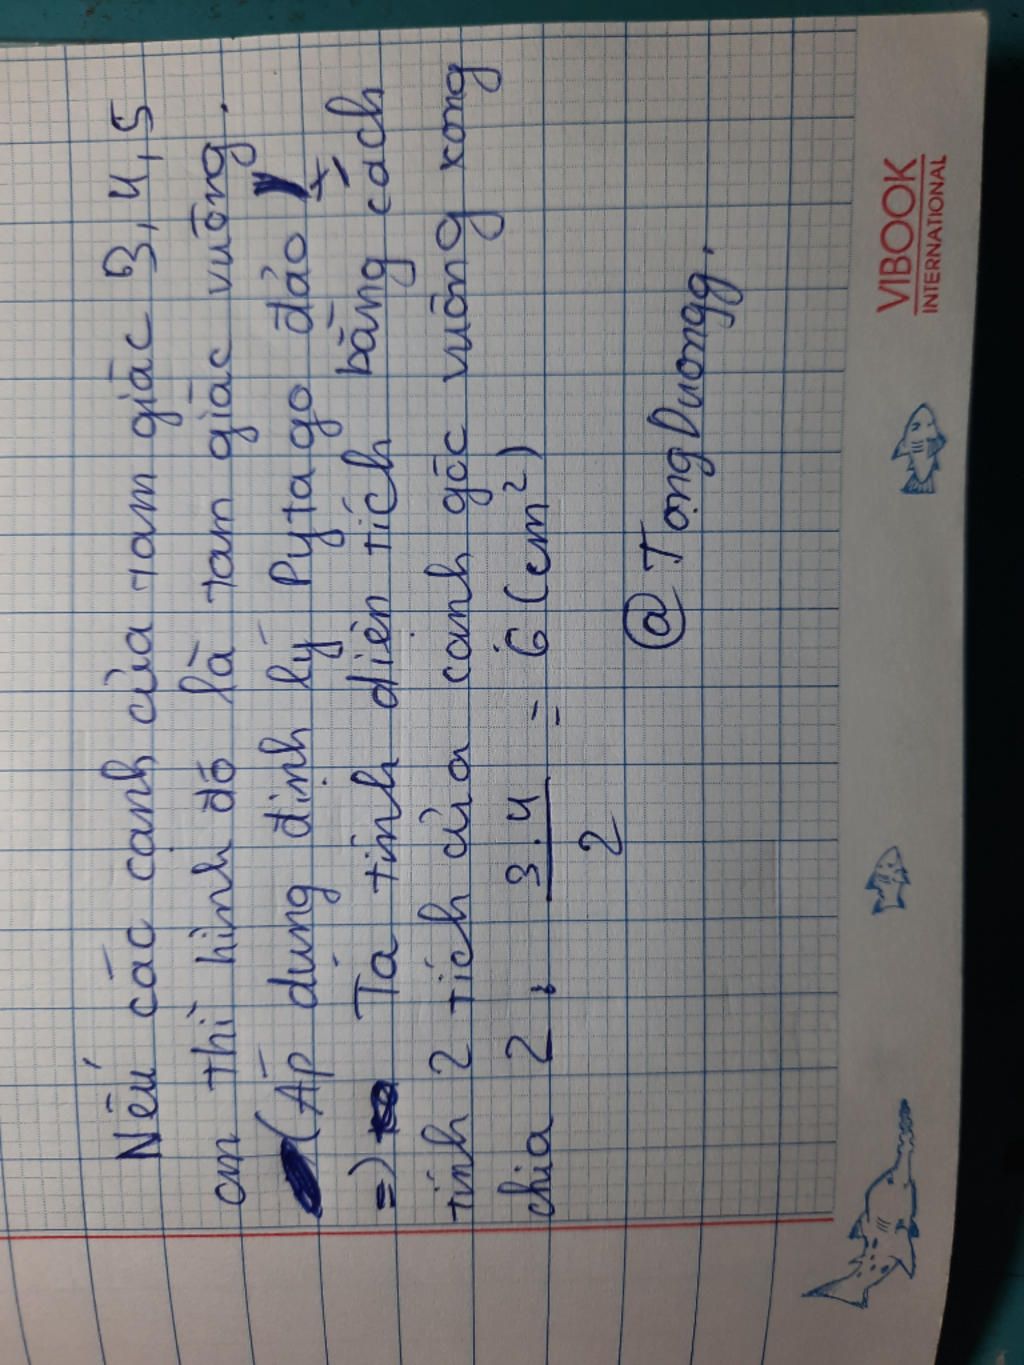 Nếu các cạnh của tam giác 3, 4, 5
cm thì hình đó là tam giác vuông.
(Áp dụng định lý Pytago đảo)
=) Ta tính diện tích bằng cách
tính 2 tích của cạnh góc vuông xong
chia 2, 3.4/2 = 6 (cm²)
@TọngDuongg.
VIBOOK
INTERNATIONAL